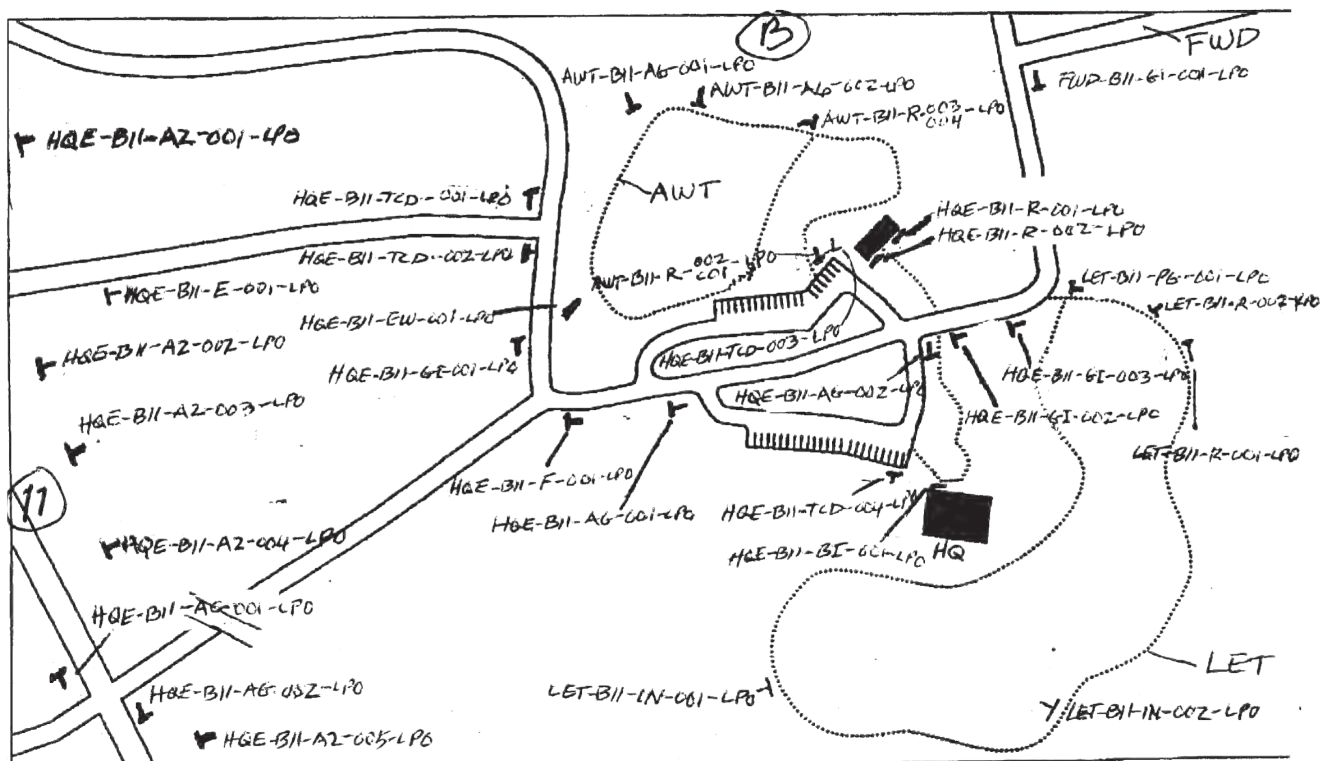 B
FWD
AWT-B11-AG-001-LPO
AWT-B11-AG-002-LPO
FWD-B11-GI-001-LPO
AWT-B11-R-003
004
HQE-B11-AZ-001-LPO
AWT
HQE-B11-TCD-001-LPO
HQE-B11-R-001-LPO
HQE-B11-R-002-LPO
HQE-B11-TCD-002-LPO
AWT-B11-R-002-LPO
001
LET-B11-PG-001-LPO
HQE-B11-E-001-LPO
LET-B11-R-002-LPO
HQE-B11-EW-001-LPO
HQE-B11-AZ-002-LPO
HQE-B11-TCD-003-LPO
HQE-B11-GI-001-LPO
HQE-B11-GI-003-LPO
HQE-B11-AG-002-LPO
HQE-B11-AZ-003-LPO
HQE-B11-GI-002-LPO
LET-B11-R-001-LPO
HQE-B11-F-001-LPO
11
HQE-B11-AG-001-LPO
HQE-B11-TCD-004-LPO
HQE-B11-AZ-004-LPO
HQE-B11-BI-001-LPO
HQ
HQE-B11-AG-001-LPO
LET
HQE-B11-AG-002-LPO
LET-B11-IN-001-LPO
LET-B11-IN-002-LPO
HQE-B11-AZ-005-LPO